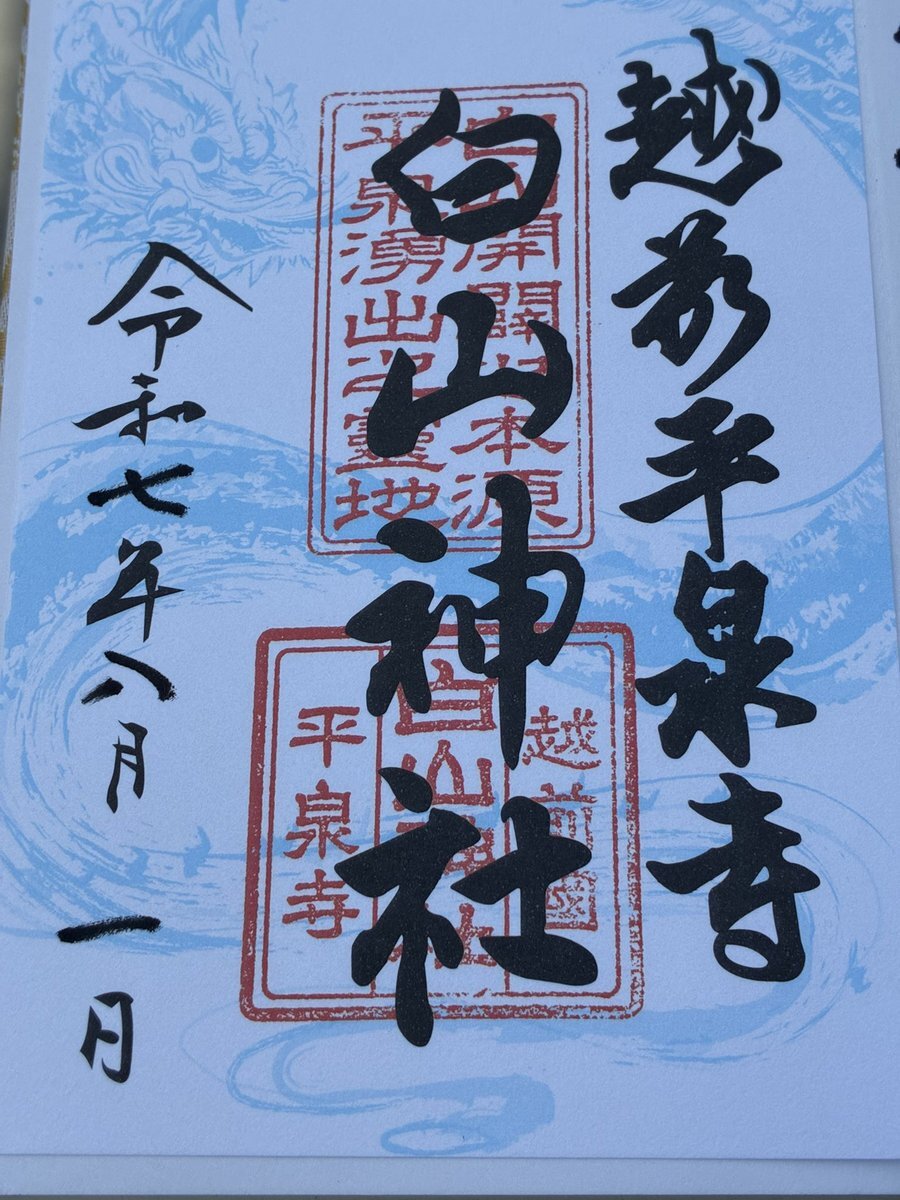 越前平泉寺
白山神社
白山開闢之本源
平泉湧出之靈地
越前國
白山神社
平泉寺
令和七年八月一日